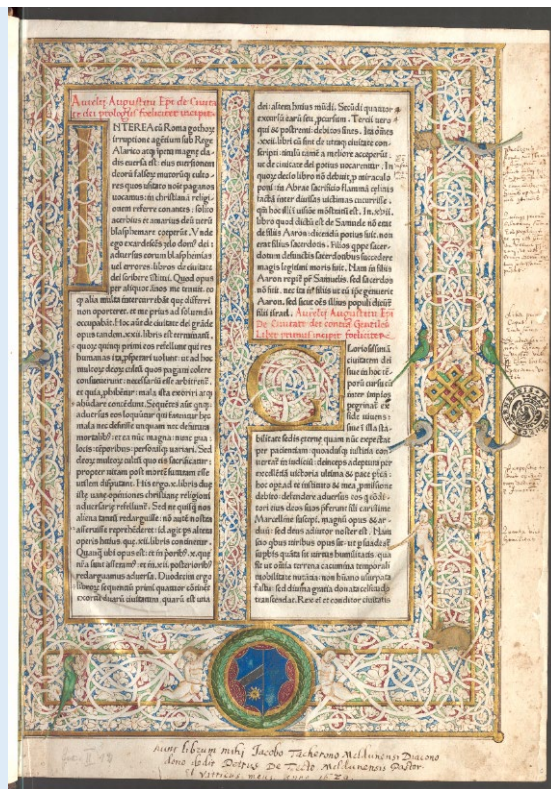 Aurelij Augustini Epi de Ciuita
te dei prologus foeliciter incipit
INTEREA cū Roma gothoꝝ
irruptione agētium sub Rege
Alarico atqȝ īpetu magnę cla-
dis euersa est: eius euersionem
deorū falsoꝝ multorūqȝ culto-
res quos usitato noīe paganos
uocamus: in christianā religi-
onem referre conantes: solito
acerbius et amarius deū uerū
blasphemare coeperūt. Vnde
ego exardescēs zelo domꝰ dei:
aduersus eorum blasphemias
uel errores: libros de ciuitate
dei scribere istitui. Quod opus
per aliquot ānos me tenuit. eo
qȝ alia multa intercurrebāt que differri
non oporteret. et me prius ad soluendū
occupabāt. Hoc aūt de ciuitate dei grāde
opus tandem .xxii. libris est terminatū.
quoꝝ quinqȝ primi eos refellunt qui res
humanas ita ꝓsperari uolunt: ut ad hoc
multoꝝ deoꝝ cultū quos pagani colere
consueuerunt: necessariū esse arbitrent̄.
et quia ꝓhibent̄: mala ista exoriri atqȝ
abūdare contendunt. Sequētes aūt qnqȝ:
aduersus eos loquunt̄ qui fatent̄ hec
mala nec defuisse unquam nec defutura
mortalibꝰ: et ea nūc magna: nunc parua:
locis: tēporibus: personisqȝ uariari. Sed
deoꝝ multoꝝ cultū quo eis sacrificatur:
propter uitam post mortē futuram esse
utilem disputant. His ergo .x. libris due
iste uanę opiniones christianę religioni
aduersarię refellunt̄. Sed ne quisqȝ nos
aliena tantū redarguisse: nō aūt nostra
asseruisse reprehēderet: id agit ps altera
operis huius: que .xii. libris continet̄.
Quanqȝ ubi opus est: et in prioribꝰ .x. que
nr̄a sunt asseramꝰ: et in .xii. posterioribꝰ
redarguamus aduersa. Duodecim ergo
libroꝝ sequentiū primi quattuor cōtinēt
exortū duarū ciuitatum. quarū est una
dei: altera huius mūdi. Secūdi quattuor
excursū earū seu ꝓcursum. Tertii uero
qui & postremi: debitos fines. Ita om̄es
.xxii. libri cū sint de utraqȝ ciuitate con-
scripti: titulū tamē a meliore acceperūt
ut de ciuitate dei potius uocarentur. In
quoꝝ decīo libro nō debuit ꝓ miraculo
poni in Abrae sacrificio flammā celitus
factā inter diuisas uictimas cucurrisse.
qm̄ hoc illi ī uisiōe mōstratū est. In .xvii.
libro quod dictū est de Samuele nō erat
de filiis Aaron: dicendū potius fuit. non
erat filius sacerdotis. Filios qppe sacer-
dotum defunctis sacerdotibus succedere
magis legitimi moris fuit. Nam in filiis
Aaron reperit̄ pr̄ Samuelis: sed sacerdos
nō fuit. nec ita in filiis ut eū ipe genuerit
Aaron. sed sicut oēs illius populi dicunt̄
filii israel. Aurelij Augustini Epi
De Ciuitate dei contra Gentiles
Liber primus incipit foeliciter
GLoriosissimā
ciuitatem dei
siue in hoc tē-
porū cursu cū
inter impios
peregrinat̄ ex
fide uiuens:
siue ī illa sta-
bilitate sedis eternę quam nūc expectat
per patientiam: quoadusqȝ iustitia con-
uertat̄ in iudiciū: deinceps adeptura per
excellētiā uictoria ultima & pace pfecta:
hoc opere ad te instituto & mea ꝓmissione
debito: defendere aduersus eos qȝ cōdi-
tori eius deos suos ꝓferunt fili carissime
Marcelline suscepi. magnū opus & ar-
duū: sed deus adiutor noster est. Nam
scio qbus uiribus opus sit: ut ꝑsuadeat̄
supbis quāta sit uirtus humilitatis. qua
fit ut omīa terrena cacumina temporali
mobilitate nutātia: non hūano usurpata
fastu: sed diuina gratia donata celsitudo
transcendat. Rex eī et conditor ciuitatis
hunc librum mihi Jacobo Tacherono Meldunensi Diacono
dono dedit Petrus De Tecto Meldunensis Pastor